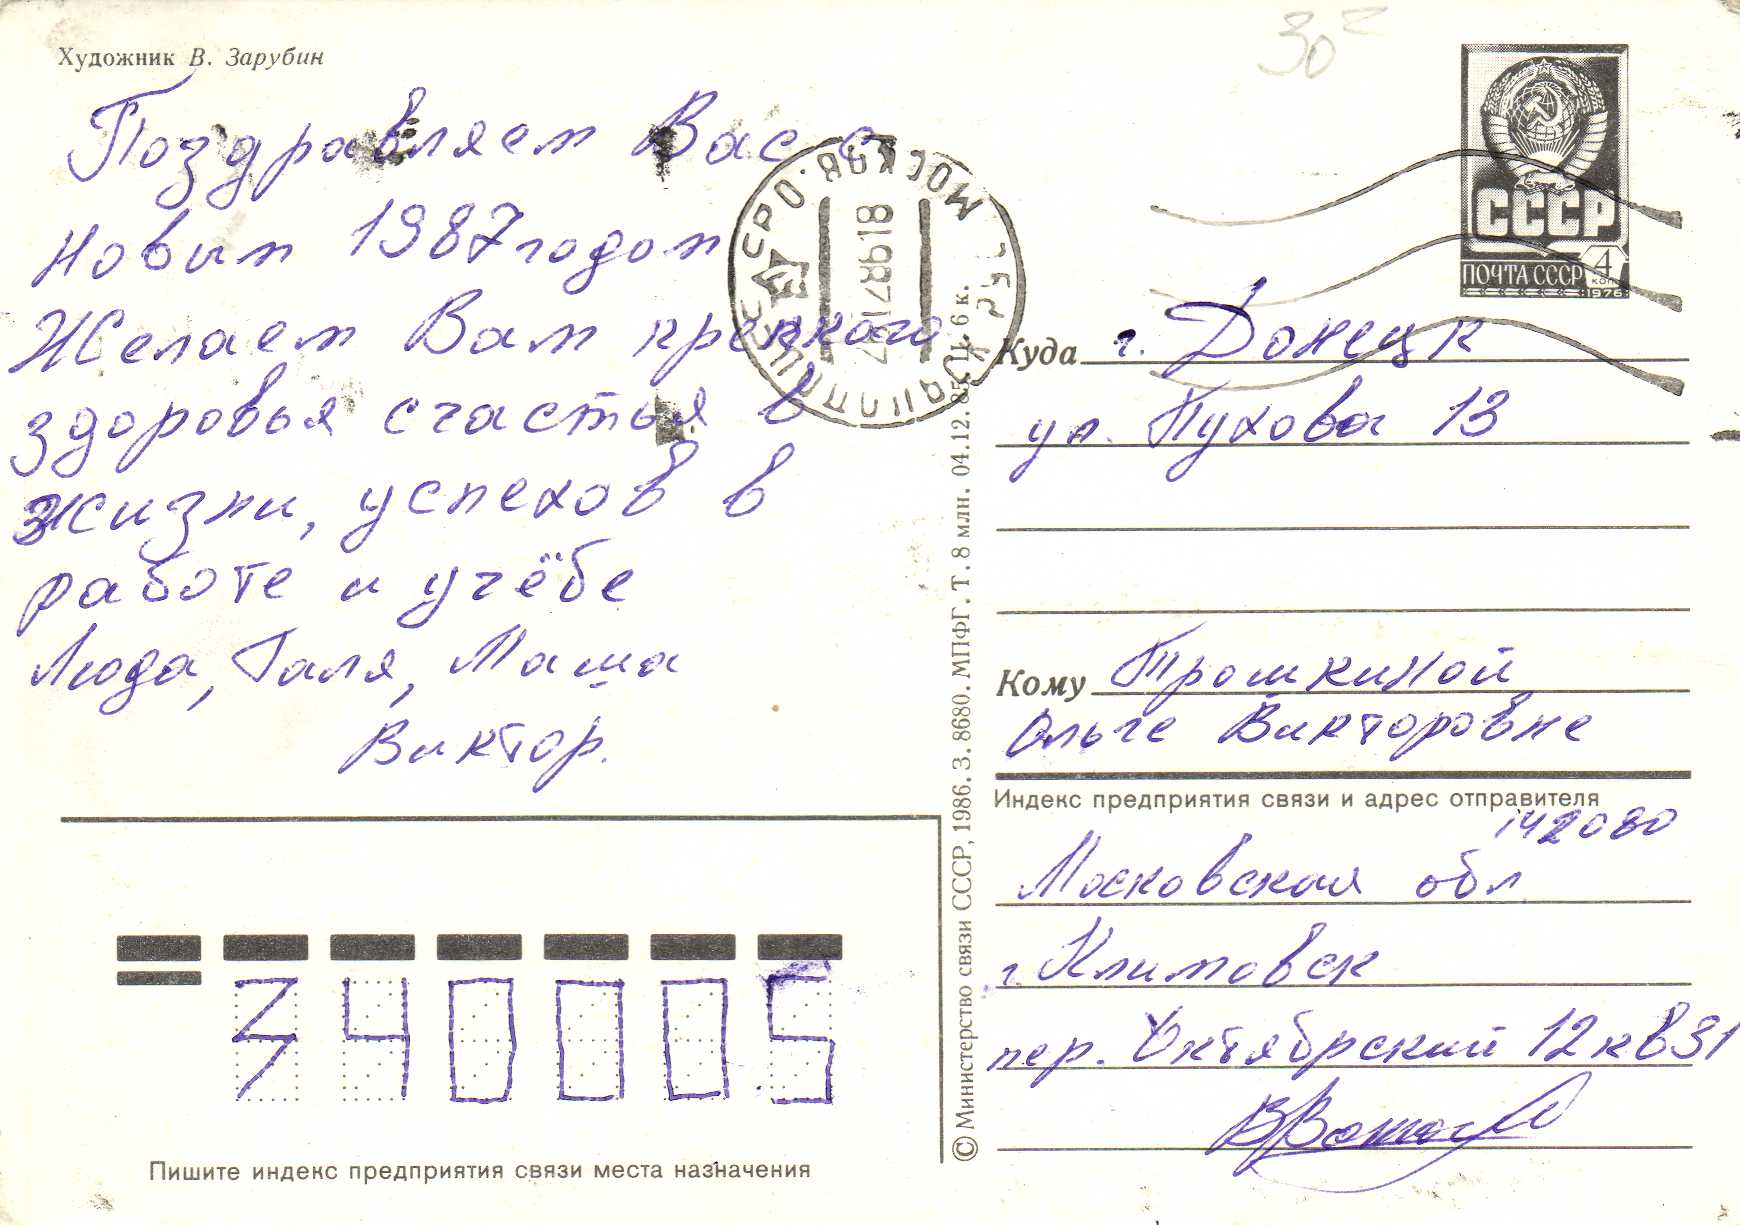 Художник В. Зарубин
30=
Поздравляем Вас с
новым 1987 годом
Желаем Вам крепкого
здоровья счастья в
жизни, успехов в
работе и учёбе
Люда, Галя, Маша
Виктор.
СССР
ПОЧТА СССР 4 КОП
1976
МОСКВА
Куда г. Донецк
ул. Пухова 13
Кому Трошкиной
Ольге Викторовне
Индекс предприятия связи и адрес отправителя
142080
Московская обл
г. Климовск
пер. Октябрьский 12 кв 31
340005
Пишите индекс предприятия связи места назначения
© Министерство связи СССР, 1986. З. 8680. МПФГ. Т. 8 млн. 04.12. 85. Ц. 6 к.